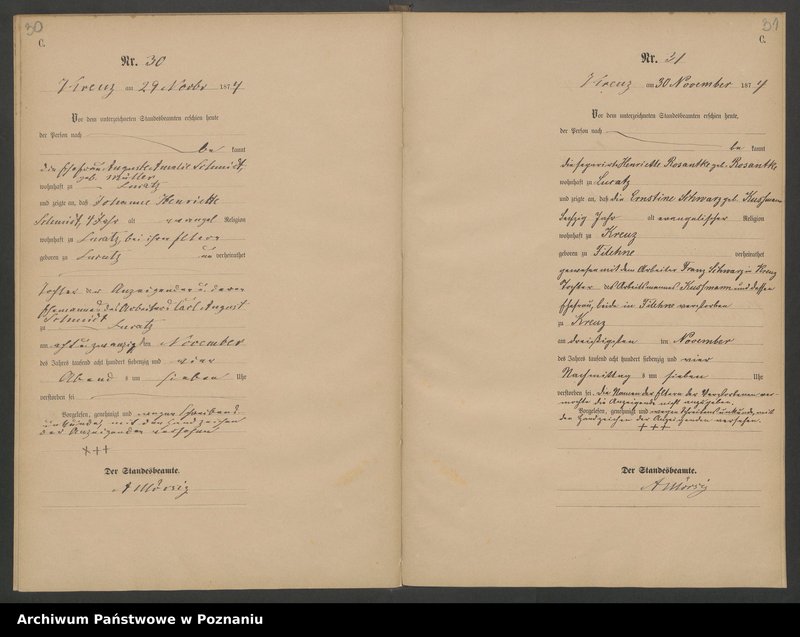 30
C.
Nr. 30
Kreuz am 29 Novbr 1874
Vor dem unterzeichneten Standesbeamten erschien heute
der Person nach
be kannt
die Ehefrau Auguste Amalie Schmidt,
geb. Müller
wohnhaft zu Lukatz
und zeigte an, daß Johanne Henriette
Schmidt, 4 Jahr alt evangel Religion
wohnhaft zu Lukatz, bei ihren Eltern
geboren zu Lukatz un verheirathet
Tochter der Anzeigenden u. deren
Ehemannes des Arbeiters Carl August
Schmidt
zu Lukatz
am achtzwanzigsten November
des Jahres tausend acht hundert siebenzig und vier
Abend s um sieben Uhr
verstorben sei
Vorgelesen, genehmigt und wegen Schreibens
unkunde, mit den Handzeichen
der Anzeigenden versehen
+++
Der Standesbeamte.
A Mörsig
31
C.
Nr. 31
Kreuz am 30 November 1874
Vor dem unterzeichneten Standesbeamten erschien heute,
der Person nach
be kannt
die separirte Henriette Rosantke geb. Rosantke,
wohnhaft zu Lucatz
und zeigte an, daß die Ernstine Schwarz geb. Kussmann
Sechzig Jahr alt evangelischer Religion
wohnhaft zu Kreuz
geboren zu Filehne verheirathet
gewesen mit dem Arbeiter Franz Schwarz in Kreuz
Tochter des Arbeitsmannes Kussmann und dessen
Ehefrau, beide in Filehne verstorben
zu Kreuz
am dreißigsten ten November
des Jahres tausend acht hundert siebenzig und vier
Nachmittag s um sieben Uhr
verstorben sei. die Namen der Eltern der Verstorbenen ver-
mochte die Anzeigende nicht anzugeben.
Vorgelesen, genehmigt und wegen Schreibensunkunde, mit
den Handzeichen der Anzeigenden versehen.
+++
Der Standesbeamte.
A Mörsig
Archiwum Państwowe w Poznaniu